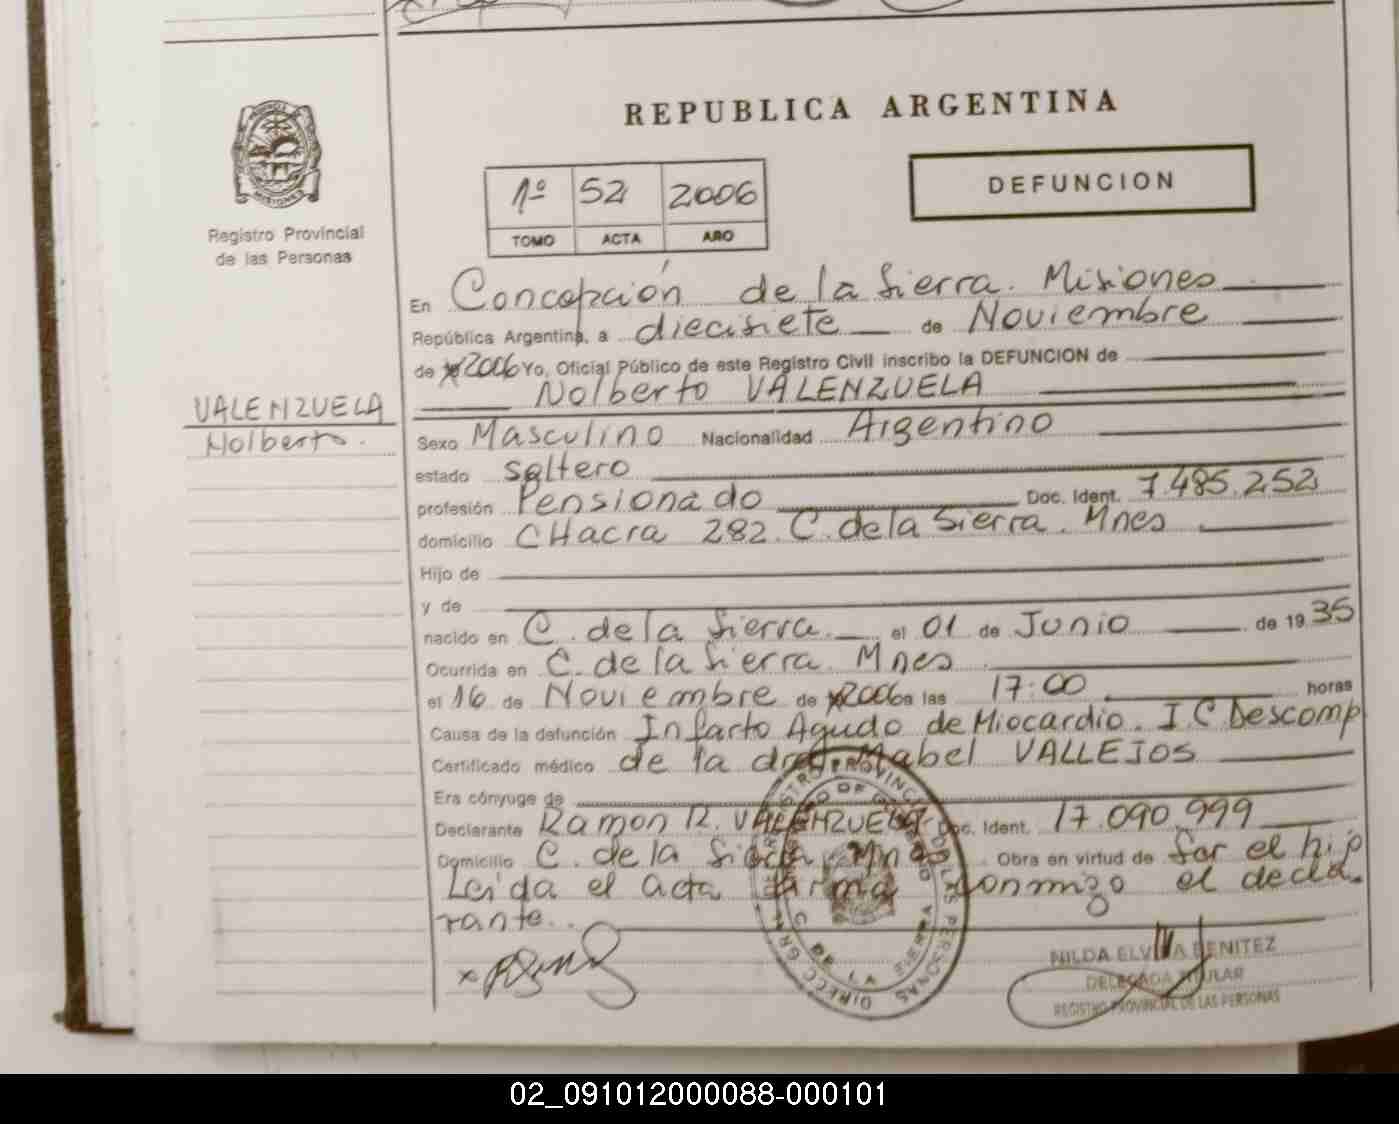 REPUBLICA ARGENTINA
1º 52 2006
TOMO ACTA AÑO
DEFUNCION
Registro Provincial
de las Personas
En Concepción de la Sierra. Misiones
República Argentina, a diecisiete de Noviembre
de 2006 Yo, Oficial Público de este Registro Civil inscribo la DEFUNCION de
Nolberto VALENZUELA
VALENZUELA
Nolberto.
Sexo Masculino Nacionalidad Argentino
estado soltero
profesión Pensionado Doc. Ident. 7.485.252
domicilio CHacra 282. C. de la Sierra. Mnes
Hijo de
y de
nacido en C. de la Sierra. el 01 de Junio de 1935
Ocurrida en C. de la Sierra. Mnes
el 16 de Noviembre de 2006 a las 17:00 horas
Causa de la defunción Infarto Agudo de Miocardio. I C Descomp
Certificado médico de la dra. Mabel VALLEJOS
Era cónyuge de
Declarante Ramon R. VALENZUELA Doc. Ident. 17.090.999
Domicilio C. de la Sierra. Mnes Obra en virtud de Ser el hijo
Leída el acta firma conmigo el decla-
rante..
NILDA ELVIRA BENITEZ
DELEGADA TITULAR
REGISTRO PROVINCIAL DE LAS PERSONAS
02_091012000088-000101